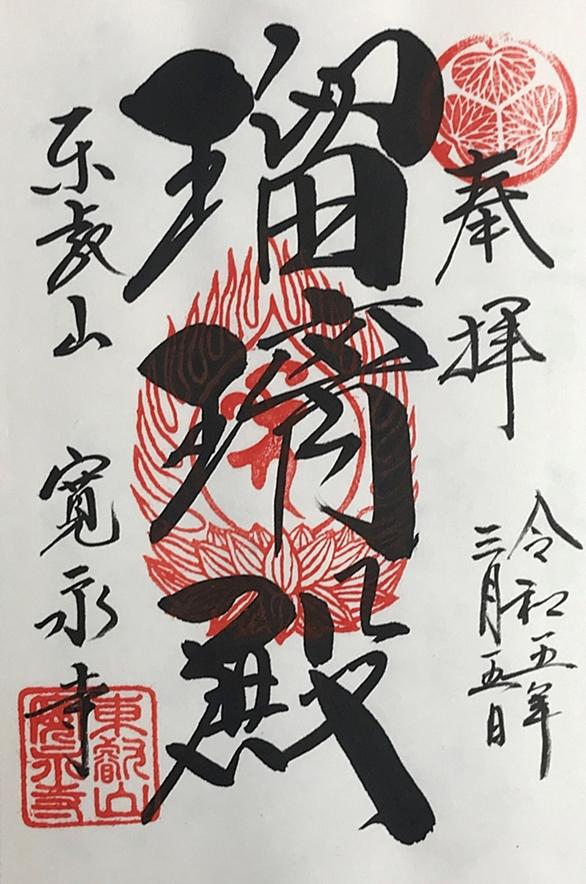 奉拝
令和五年
三月五日
瑠璃殿
東叡山 寛永寺
東叡山
寛永寺